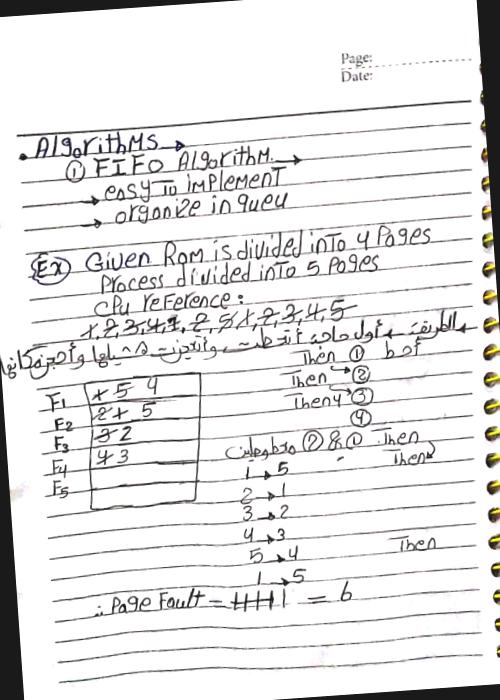 Page:
Date:
. Algorithms →
① FIFO Algorithm. →
→ easy To implement
→ organize in queu
Ex Given Ram is divided into 4 Pages
Process divided into 5 Pages
CPU reference:
1, 2, 3, 4, 1, 2, 5, 1, 2, 3, 4, 5
الطريقة → أول حاجة أتحطت
أحط ① Then
Then → ②
Then → ③
④
F1 1 5 4
F2 2 1 5
F3 3 2
F4 4 3
F5
Then ① & ②
Then
1 → 5
2 → 1
3 → 2
4 → 3
5 → 4 Then
1 → 5
∴ Page Fault = = 6